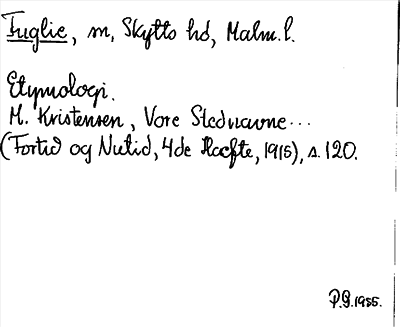 Fuglie, m, Skytts hd, Malm. l.
Etymologi.
M. Kristensen, Vore Stednavne...
(Fortid og Nutid, 4de Hæfte, 1915), s. 120.
P.G. 1955.